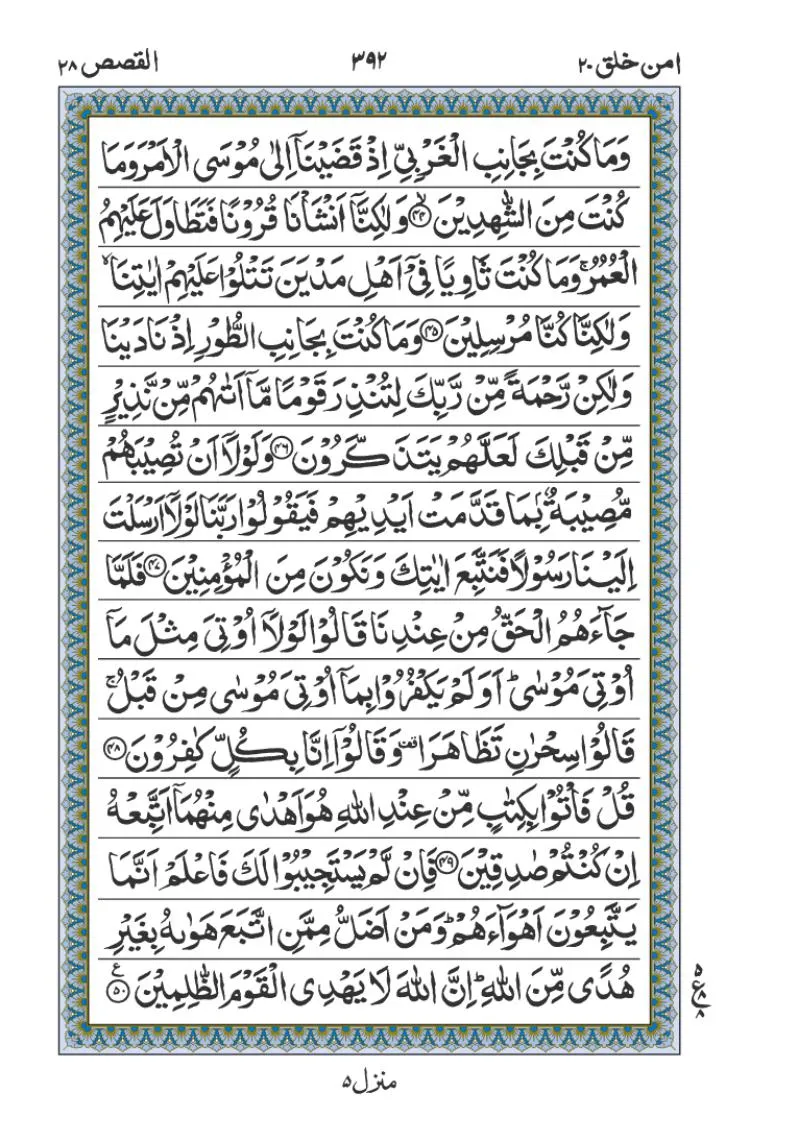 امن خلق ۲۰ ۳۹۲ القصص ۲۸
وَمَا كُنْتَ بِجَانِبِ الْغَرْبِيِّ اِذْ قَضَيْنَاۤ اِلٰى مُوْسَى الْاَمْرَ وَمَا
كُنْتَ مِنَ الشّٰهِدِيْنَ ۙ‏﴿۴۴﴾ وَلٰكِنَّاۤ اَنْشَاْنَا قُرُوْنًا فَتَطَاوَلَ عَلَيْهِمُ
الْعُمُرُ ۚ وَمَا كُنْتَ ثَاوِيًا فِيْۤ اَهْلِ مَدْيَنَ تَتْلُوْا عَلَيْهِمْ اٰيٰتِنَا ۙ
وَلٰكِنَّا كُنَّا مُرْسِلِيْنَ ﴿۴۵﴾ وَمَا كُنْتَ بِجَانِبِ الطُّوْرِ اِذْ نَادَيْنَا
وَلٰكِنْ رَّحْمَةً مِّنْ رَّبِّكَ لِتُنْذِرَ قَوْمًا مَّاۤ اَتٰىهُمْ مِّنْ نَّذِيْرٍ
مِّنْ قَبْلِكَ لَعَلَّهُمْ يَتَذَكَّرُوْنَ ﴿۴۶﴾ وَلَوْلَاۤ اَنْ تُصِيْبَهُمْ
مُّصِيْبَةٌۢ بِمَا قَدَّمَتْ اَيْدِيْهِمْ فَيَقُوْلُوْا رَبَّنَا لَوْلَاۤ اَرْسَلْتَ
اِلَيْنَا رَسُوْلًا فَنَتَّبِعَ اٰيٰتِكَ وَنَكُوْنَ مِنَ الْمُؤْمِنِيْنَ ﴿۴۷﴾ فَلَمَّا
جَآءَهُمُ الْحَقُّ مِنْ عِنْدِنَا قَالُوْا لَوْلَاۤ اُوْتِيَ مِثْلَ مَاۤ
اُوْتِيَ مُوْسٰى ؕ اَوَلَمْ يَكْفُرُوْا بِمَاۤ اُوْتِيَ مُوْسٰى مِنْ قَبْلُ ۚ
قَالُوْا سِحْرٰنِ تَظَاهَرَا ۥقف وَقَالُوْۤا اِنَّا بِكُلٍّ كٰفِرُوْنَ ﴿۴۸﴾
قُلْ فَاْتُوْا بِكِتٰبٍ مِّنْ عِنْدِ اللّٰهِ هُوَ اَهْدٰى مِنْهُمَاۤ اَتَّبِعْهُ
اِنْ كُنْتُمْ صٰدِقِيْنَ ﴿۴۹﴾ فَاِنْ لَّمْ يَسْتَجِيْبُوْا لَكَ فَاعْلَمْ اَنَّمَا
يَتَّبِعُوْنَ اَهْوَآءَهُمْ ؕ وَمَنْ اَضَلُّ مِمَّنِ اتَّبَعَ هَوٰىهُ بِغَيْرِ
هُدًى مِّنَ اللّٰهِ ؕ اِنَّ اللّٰهَ لَا يَهْدِى الْقَوْمَ الظّٰلِمِيْنَ ﴿۵۰﴾ ع
۵ ع ۸ ۸
منزل ۵